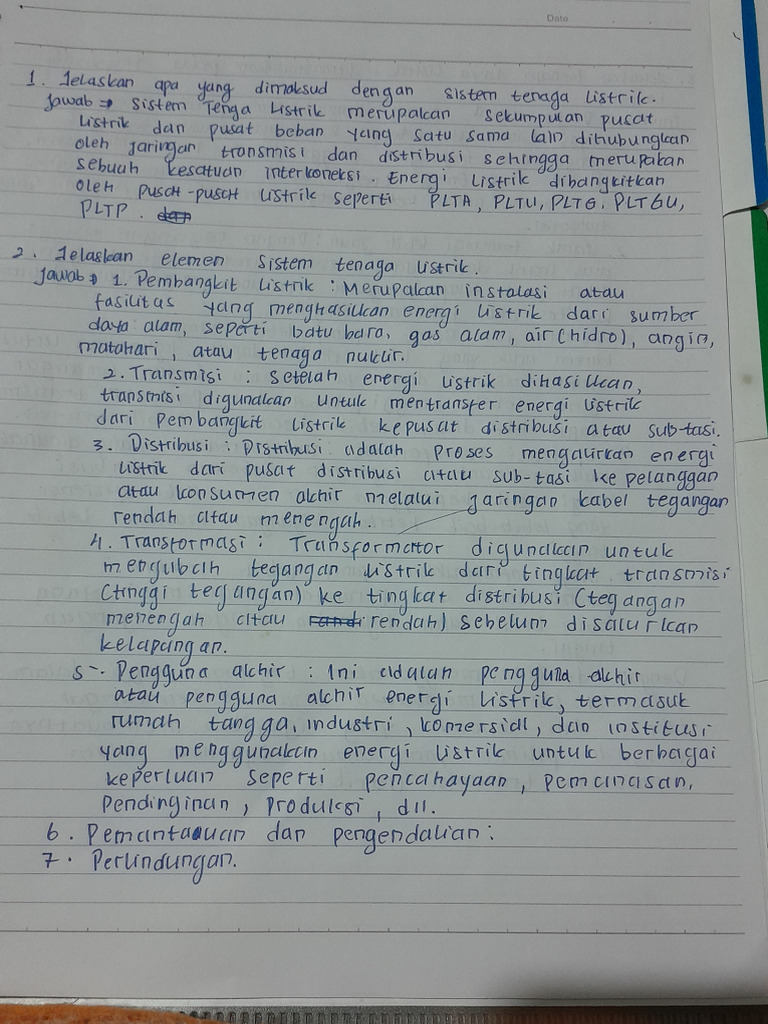 Date
1. Jelaskan apa yang dimaksud dengan sistem tenaga listrik.
Jawab ⇒ Sistem Tenga Listrik merupakan sekumpulan pusat
listrik dan pusat beban yang satu sama lain dihubungkan
oleh jaringan transmisi dan distribusi sehingga merupakan
sebuah kesatuan interkoneksi. Energi listrik dibangkitkan
oleh pusat-pusat listrik seperti PLTA, PLTU, PLTG, PLTGU,
PLTP. dan
2. Jelaskan elemen sistem tenaga listrik.
Jawab ⇒ 1. Pembangkit Listrik : Merupakan instalasi atau
fasilitas yang menghasilkan energi listrik dari sumber
daya alam, seperti batu bara, gas alam, air (hidro), angin,
matahari, atau tenaga nuklir.
2. Transmisi : setelah energi listrik dihasilkan,
transmisi digunakan untuk mentransfer energi listrik
dari pembangkit listrik kepusat distribusi atau sub-tasi.
3. Distribusi : Distribusi adalah proses mengalirkan energi
listrik dari pusat distribusi atau sub-tasi ke pelanggan
atau konsumen akhir melalui jaringan kabel tegangan
rendah atau menengah.
4. Transformasi : Transformator digunakan untuk
mengubah tegangan listrik dari tingkat transmisi
(tinggi tegangan) ke tingkat distribusi (tegangan
menengah atau rendah) sebelum disalurkan
kelapangan.
5. Pengguna akhir : Ini adalah pengguna akhir
atau pengguna akhir energi listrik, termasuk
rumah tangga, industri, komersial, dan institusi
yang menggunakan energi listrik untuk berbagai
keperluan seperti pencahayaan, pemanasan,
pendinginan, produksi, dll.
6. Pemantauan dan pengendalian :
7. Perlindungan.